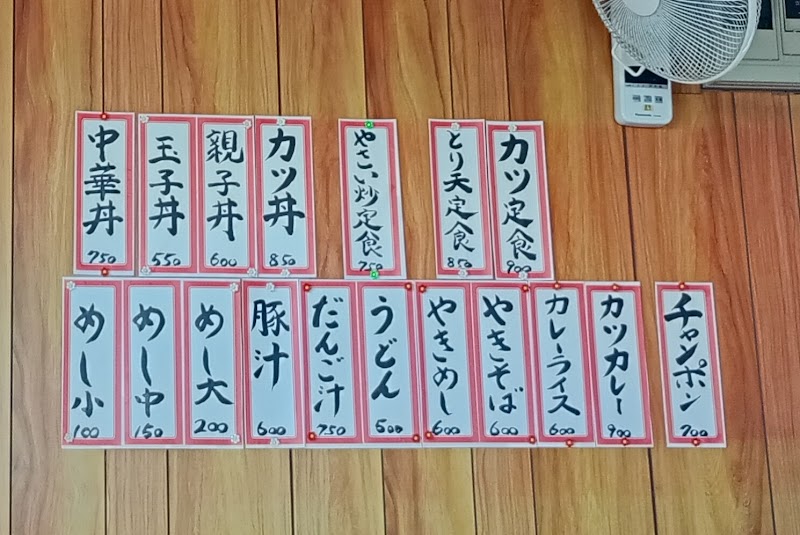 カツ定食 900
とり天定食 850
やさい炒定食 750
カツ丼 850
親子丼 600
玉子丼 550
中華丼 750
チャンポン 700
カツカレー 900
カレーライス 600
やきそば 600
やきめし 600
うどん 500
だんご汁 750
豚汁 600
めし大 200
めし中 150
めし小 100